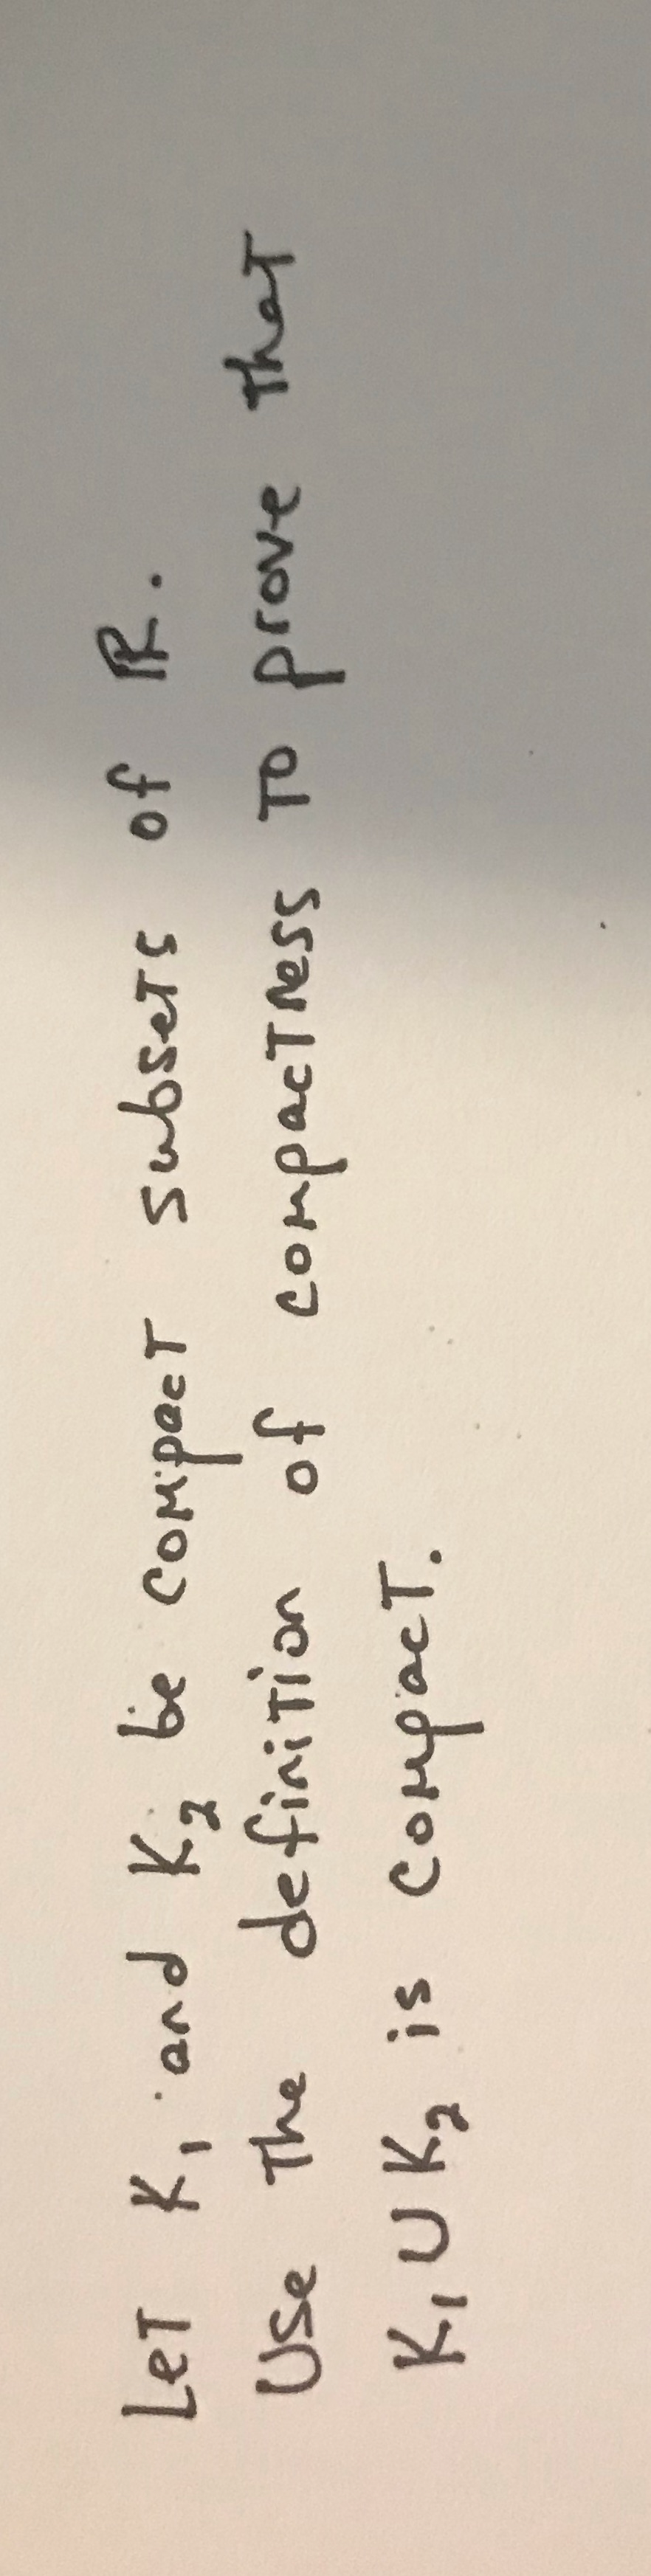 Let K₁ and K₂ be compact subsets of ℝ.
Use the definition of compactness to prove that
K₁ ∪ K₂ is compact.